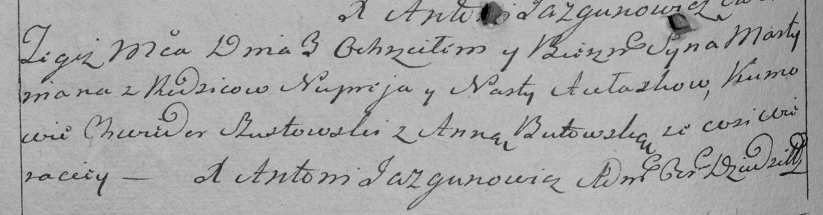 X Antoni Jazgunowicz
Tegoż Mca Dnia 3 Ochrzciłem y Bierzm Syna Marty
miana z Rodzicow Nupreja y Nasty Autaskow, Kumo
wie Chwiedor Szustowski z Anną Butowską ze wsi
raciey — X Antoni Jazgunowicz Adm